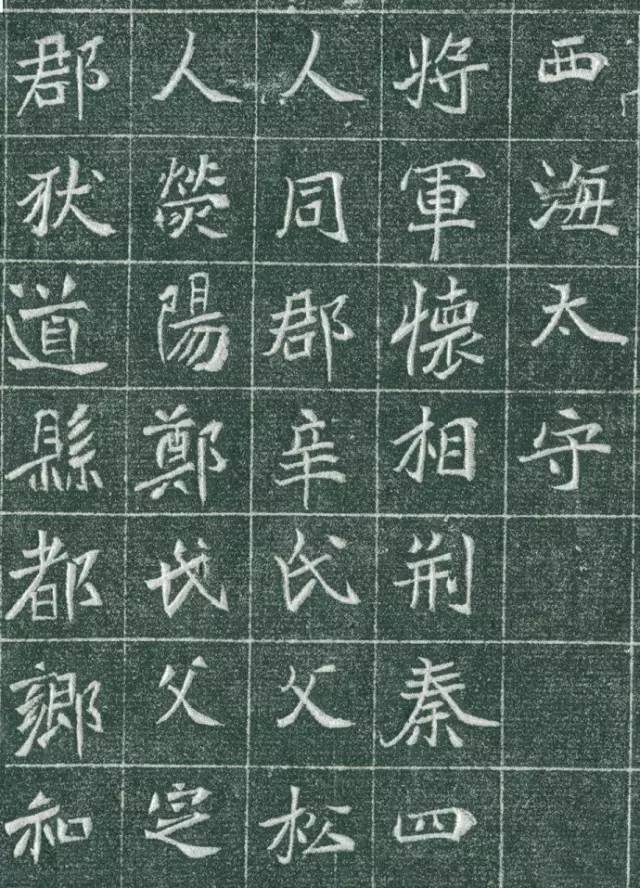 西海太守
將軍懷相荆秦四
人同郡辛氏父松
人熒陽鄭氏父定
郡狄道縣都鄉和